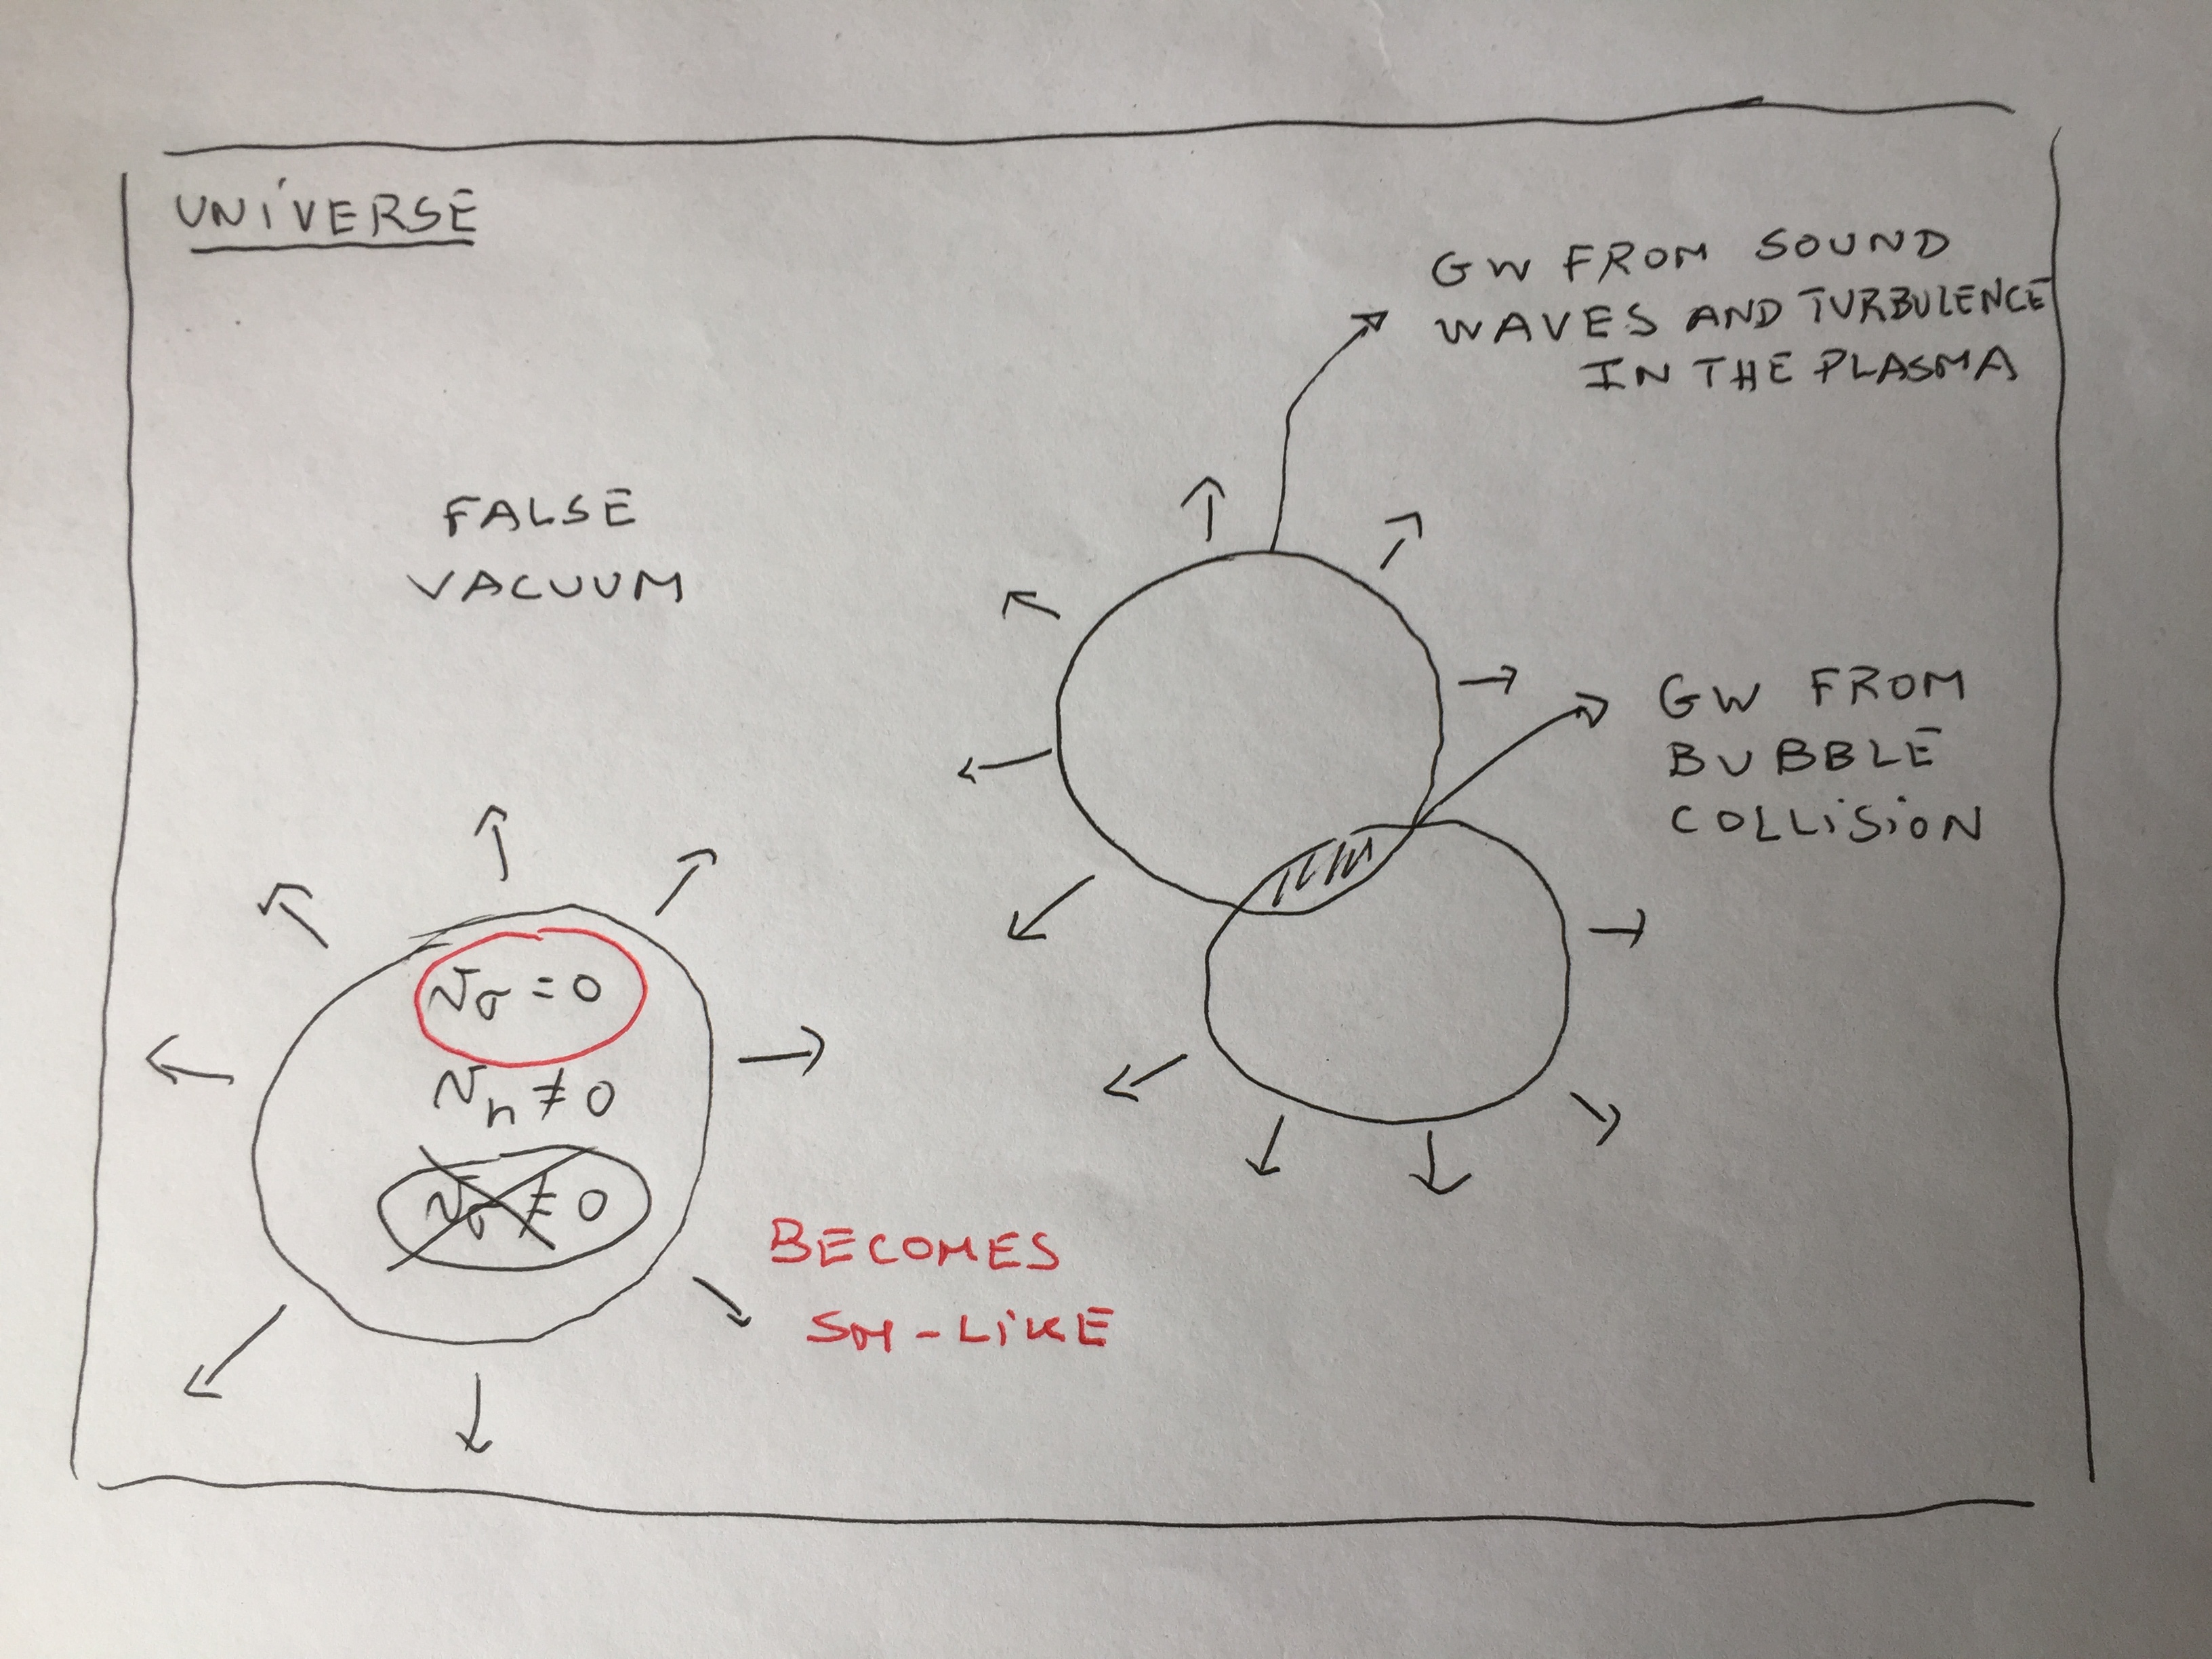 UNIVERSE
GW FROM SOUND
WAVES AND TURBULENCE
IN THE PLASMA
FALSE
VACUUM
GW FROM
BUBBLE
COLLISION
vσ = 0
vh ≠ 0
vσ ≠ 0
BECOMES
SM-LIKE